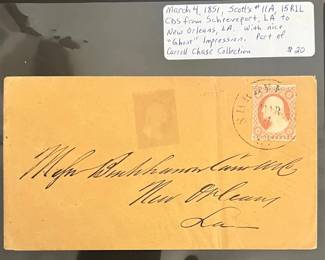 March 4, 1851, Scott's #11A, 15R1L
CDS from Schreveport, LA to
New Orleans, LA. With nice
"Ghost" Impression. Part of
Carroll Chase Collection $20
SHREVE
MAR
New Orleans
La